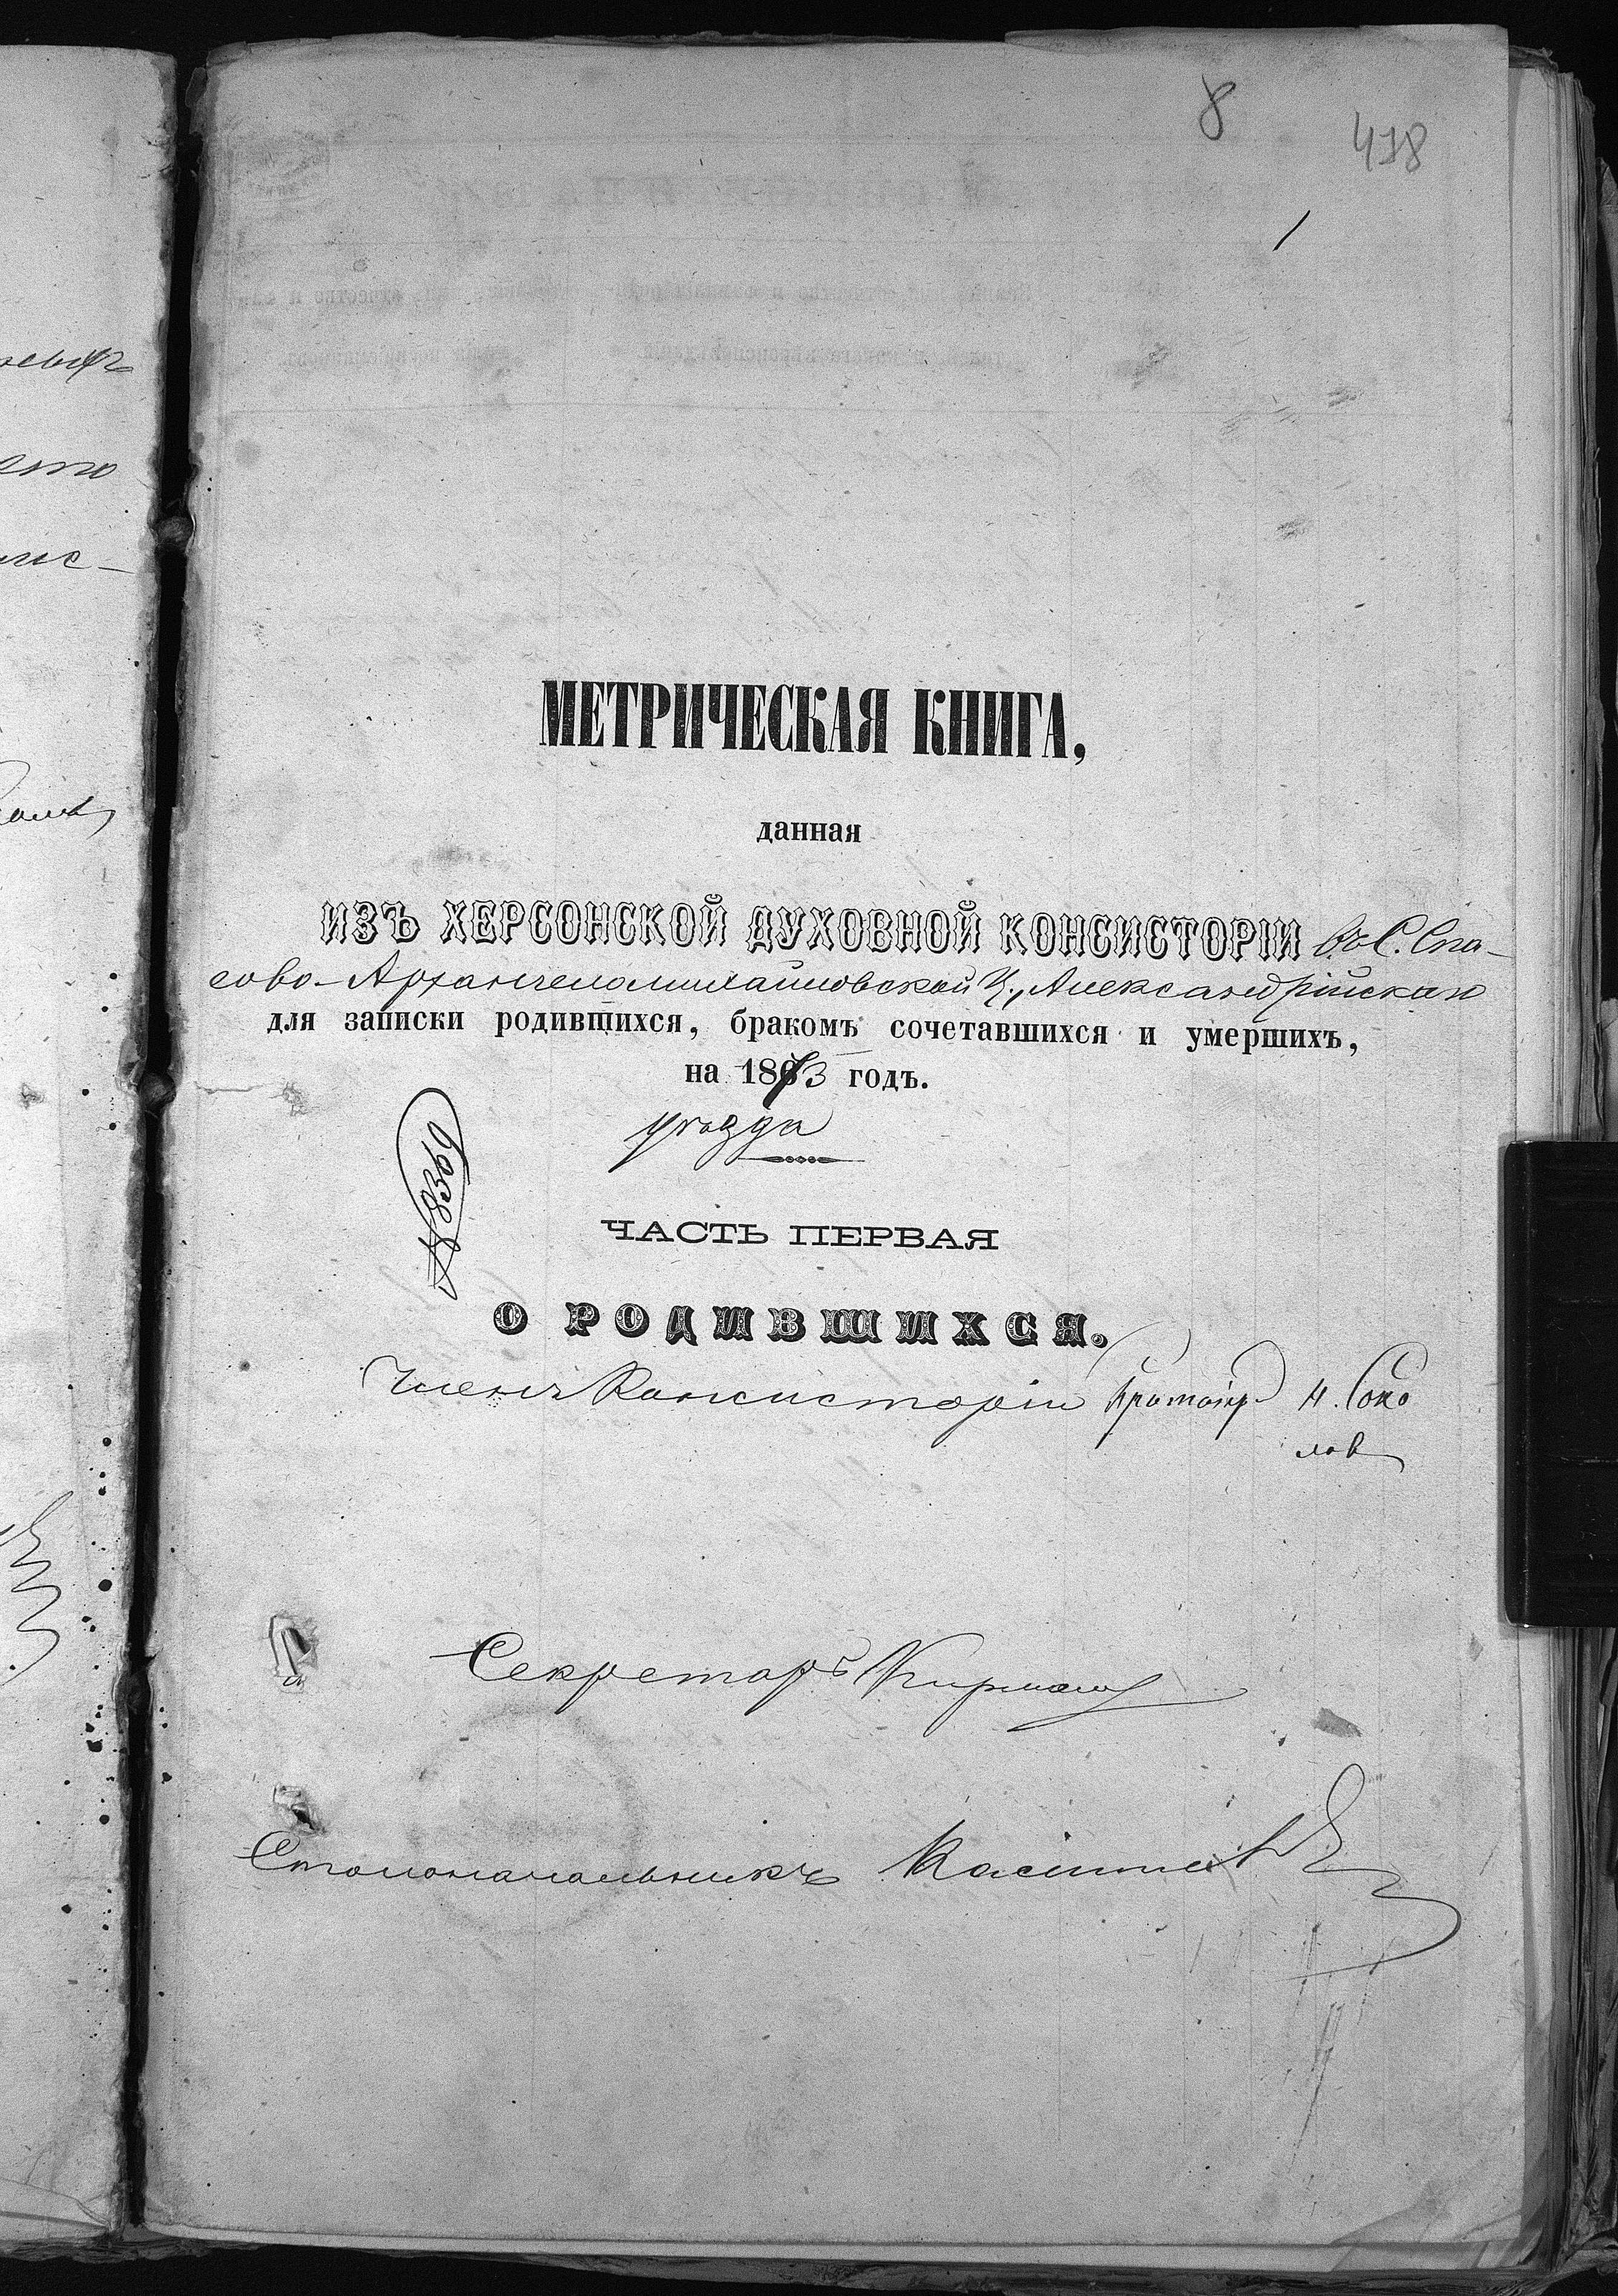 8
418
1
МЕТРИЧЕСКАЯ КНИГА,
данная
ИЗЪ ХЕРСОНСКОЙ ДУХОВНОЙ КОНСИСТОРІИ во С. Спа-
сово-Архангеломихайловской Ц., Александрійскаго
для записки родившихся, бракомъ сочетавшихся и умершихъ,
на 1873 годъ.
уѣзда
ЧАСТЬ ПЕРВАЯ
О РОДИВШИХСЯ.
Членъ Консисторіи Протоіер. Н. Соко
лов
Секретарь
Столоначальникъ